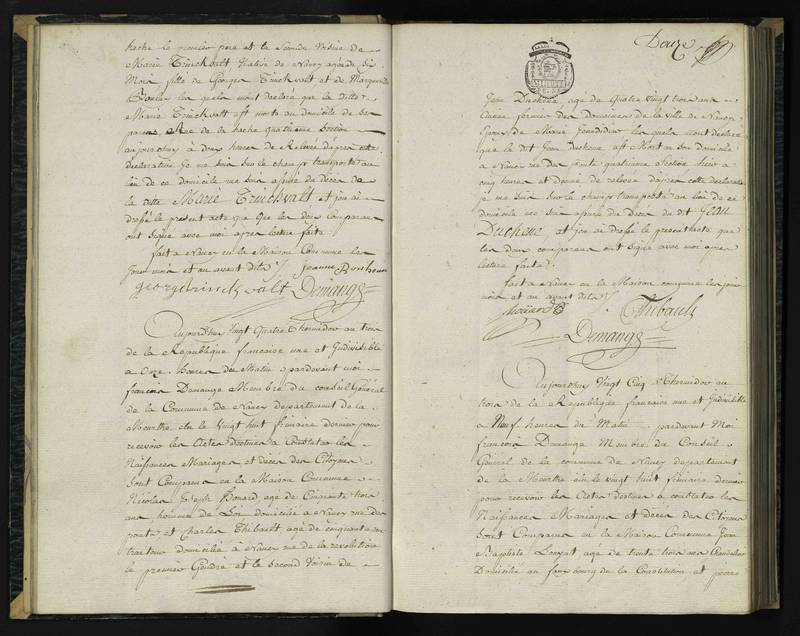 hache le premier pere et la seconde voisine de
Marie Trinckvalt Native de Nancy agée de six
Mois fille de Georges Trinckvalt et de Marguerite
les quels mont declaré que la ditte
Marie Trinckvalt est morte au domicile de ses
parens Rue de la hache quatrieme Section
aujourdhuy à deux heures de Relevée dapres cette
declaration je me suis sur le champ transporté au
lieu de ce domicile me suis assuré du décès de
la ditte Marie Trinckvalt et jai
dressé le present acte que les deux comparans
ont signé avec moi apres lecture faite
fait a Nancy en la Maison Commune les
Jour mois et an avant dits Jeanne
george trinck valt Demange
Aujourdhui Vingt Quatre Thermidor an trois
de la Republique francaise une et Indivisible
a Onze heures du Matin pardevant moi
francois Demange Membre du conseil Général
de la Commune de Nancy departement de la
Meurthe elu le Vingt huit frimaire dernier pour
recevoir les Actes destinés a Constater les
Naissances Mariages et décès des Citoyens
Sont Comparus en la Maison Commune
Nicolas Joseph age de Cinquante trois
ans homme de Loi domicilié a Nancy rue des
ponts et Charles Thibault agé de cinquante
traiteur domicilié a Nancy rue de la revolution
le premier Gendre et le second Voisin de
Douze
Jean Duchêne agé de Quatre Vingt trois ans
fermier des Domaines de la ville de Nancy
de Marie les quels mont declaré
que le dit Jean Duchene est Mort en son domicile
a Nancy rue des ponts quatrieme Section hier a
cinq heures et demie de relevée dapres cette declaration
je me suis sur le champ transporté au lieu de ce
domicile me suis assuré du Deces du dit Jean
Duchêne et jai dressé le present acte que
les deux comparans ont signé avec moi apres
lecture faite
fait a Nancy en la Maison commune les jour
mois et an avant dits
Thibault
Demange
Aujourdhuy Vingt Cinq Thermidor an
trois de la Republique francaise une et Indivisible
a Neuf heures du Matin pardevant Moi
francois Demange Membre du Conseil
General de la commune de Nancy departement
de la Meurthe elu le vingt huit frimaire dernier
pour recevoir les Actes destinés a constater les
Naissances Mariages et décès des Citoyens
Sont Comparus en la Maison Commune Jean
Baptiste age de trente trois ans
Domicilié au faux bourg de la Constitution et pierre